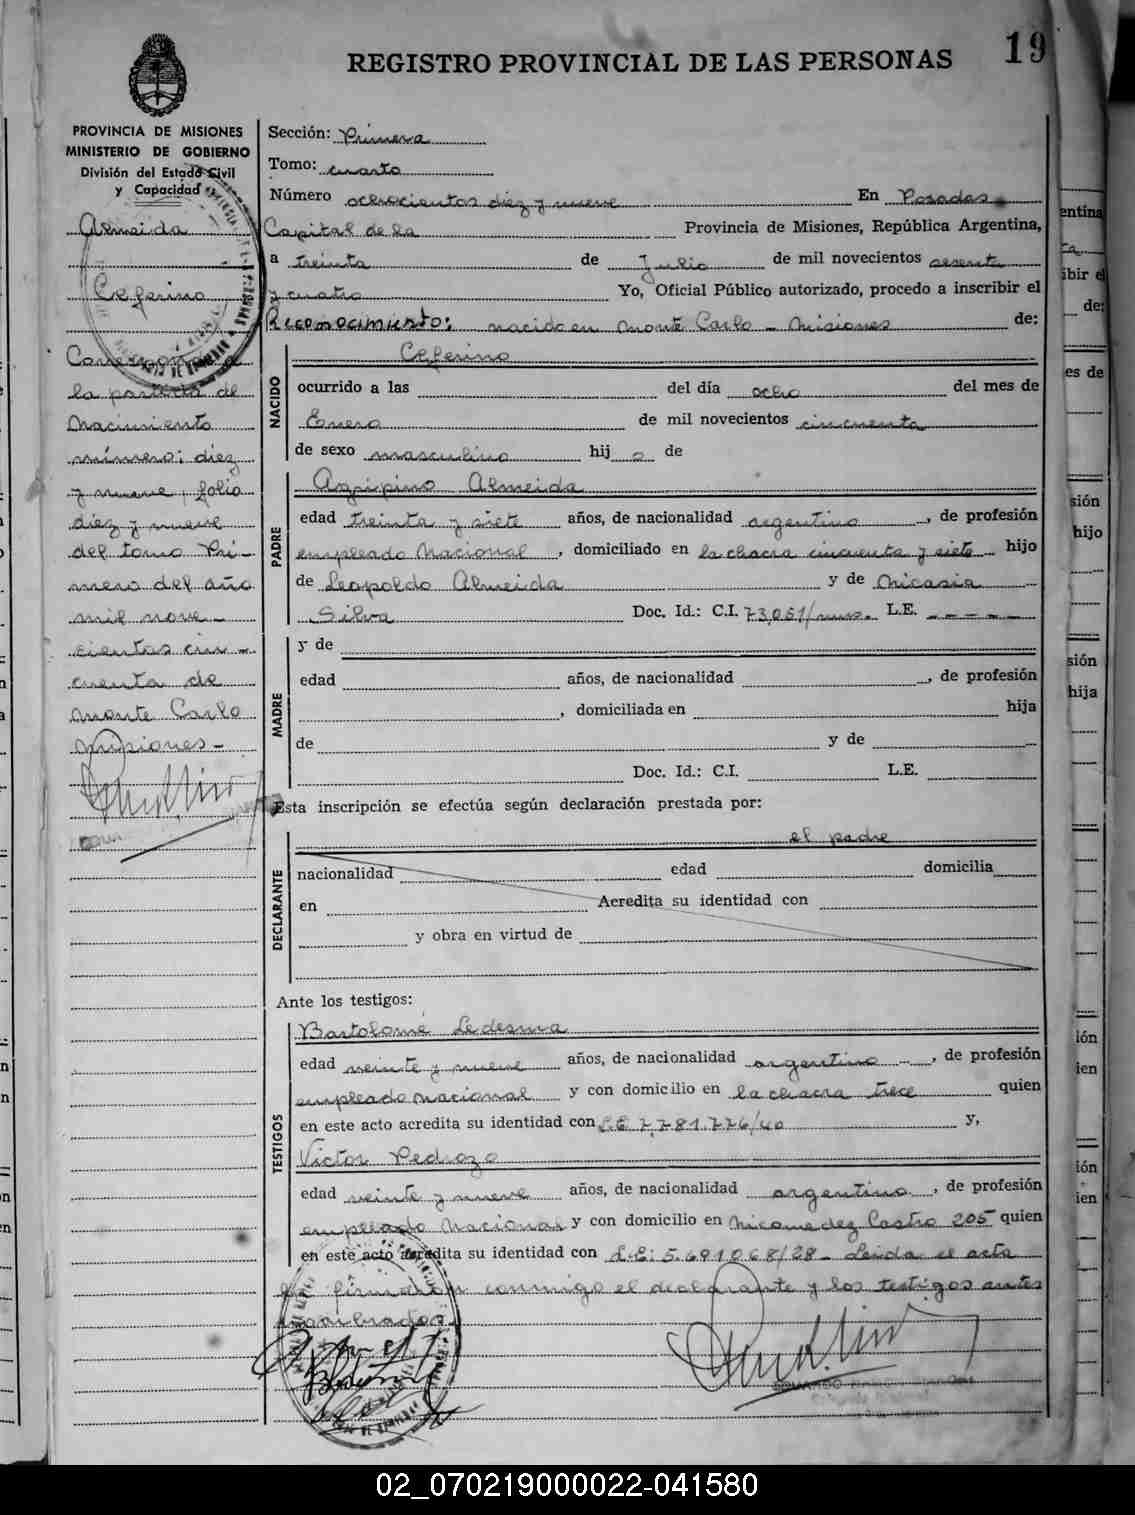 REGISTRO PROVINCIAL DE LAS PERSONAS
19
PROVINCIA DE MISIONES
MINISTERIO DE GOBIERNO
División del Estado Civil
y Capacidad
Almeida
Ceferino
Corresponde a
la partida de
Nacimiento
número: diez
y nueve, folio
diez y nueve
del tomo Pri-
mero del año
mil nove-
cientos cin-
cuenta de
Monte Carlo
Misiones-
Sección: Primera
Tomo: cuarto
Número ochocientos diez y nueve En Posadas
Capital de la Provincia de Misiones, República Argentina,
a treinta de Julio de mil novecientos sesenta
y cuatro Yo, Oficial Público autorizado, procedo a inscribir el
Reconocimiento: nacido en Monte Carlo - Misiones de:
NACIDO
Ceferino
ocurrido a las del día ocho del mes de
Enero de mil novecientos cincuenta
de sexo masculino hij o de
PADRE
Agripino Almeida
edad treinta y siete años, de nacionalidad argentino, de profesión
empleado Nacional, domiciliado en la chacra cincuenta y siete hijo
de Leopoldo Almeida y de Nicasia
Silva Doc. Id.: C.I. 73,051/mns. L.E. - - - -
MADRE
y de
edad años, de nacionalidad , de profesión
, domiciliada en hija
de y de
Doc. Id.: C.I. L.E.
Esta inscripción se efectúa según declaración prestada por:
DECLARANTE
el padre
nacionalidad edad domicilia
en Acredita su identidad con
y obra en virtud de
Ante los testigos:
TESTIGOS
Bartolomé Ledesma
edad veinte y nueve años, de nacionalidad argentino, de profesión
empleado nacional y con domicilio en la chacra trece quien
en este acto acredita su identidad con L.E 7.781.776/40 y,
Victor Pedrozo
edad veinte y nueve años, de nacionalidad argentino, de profesión
empleado Nacional y con domicilio en Nicomedez Castro 205 quien
en este acto acredita su identidad con L.E: 5.691068/28- Leida el acta
firmaron conmigo el declarante y los testigos antes
nombrados
02_070219000022-041580